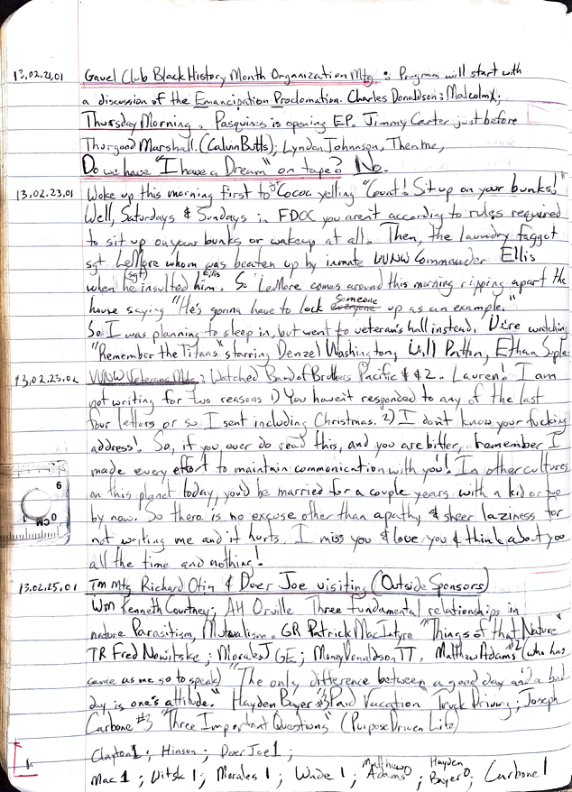 13.02.21.01 Gavel Club Black History Month Organization Mtg : Program will start with
a discussion of the Emancipation Proclomation. Charles Donaldson: Malcolm X;
Thursday Morning. Pasquines is opening EP. Jimmy Carter just before
Thurgood Marshall. (Calvin Butts); Lyndon Johnnson, Then me,
Do we have "I have a Dream" on tape? No.
13.02.23.01 Woke up this morning first to Cocoa yelling "Count! Sit up on your bunks!"
Well, Saturdays & Sundays in FDOC you aren't according to rules required
to sit up on your bunks or wakeup at all. Then, the laundry faggot
sgt. LeMore whom was beaten up by inmate VVNW Commander Ellis
when he (sgt) insulted him. Ellis So LeMore comes around this morning ripping apart the
house saying "He's gonna have to lock everyone someone up as an example."
So I was planning to sleep in, but went to veteran's hall instead. We're watching
"Remember the Titans" starring Denzel Washington, Will Patton, Ethan Suplee
13.02.23.02 VVNW Veterans Mtg : Watched Band of Brothers Pacific #4 2. Lauren! I am
not writing for two reasons 1) You haven't responded to any of the last
four letters or so I sent including Christmas. 2) I don't know your fucking
address! So, if you ever do read this, and you are bitter, remember I
made every effort to maintain communication with you! In other cultures
on this planet today, you'd be married for a couple years with a kid or two
by now. So there is no excuse other than apathy & sheer laziness for
not writing me and it hurts. I miss you & love you & think about you
all the time and nothing!
13.02.25.01 Tm Mtg Richard Otin & Dver Joe visiting (Outside Sponsors)
Wm Kenneth Courtney; AH Orville Three fundamental relationships in
nature Parasitism, Mutualism. GR Patrick MacIntyre "Things of that Nature"
TR Fred Nowitske; Morales J GE; Money Donaldson TT, Matthew Adams #2 (who has
same as me go to speak) "The only difference between a good day and a bad
day is one's attitude." Hayden Bayer #3 Paid Vacation Truck Driving; Joseph
Carbone #3 "Three Important Questions" (Purpose Driven Life)
Clayton 1; Hinson; Dver Joe 1;
Mac 1; Witsk 1; Morales 1; Wade 1; Matthew Adams 0; Hayden Bayer 0; Carbone 1
6
CM